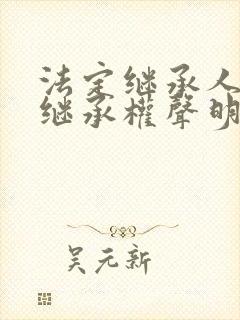 法定继承人
继承權聲明
吴元新